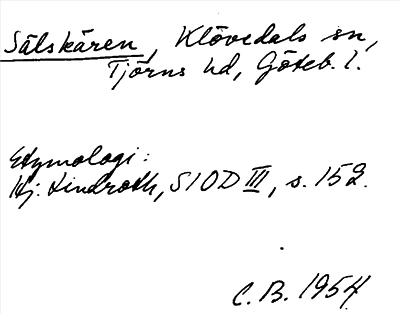 Sälskären, Klövedals sn,
Tjörns hd, Göteb. l.
Etymologi:
Hj. Lindroth, SIOD III, s. 152.
C. B. 1954